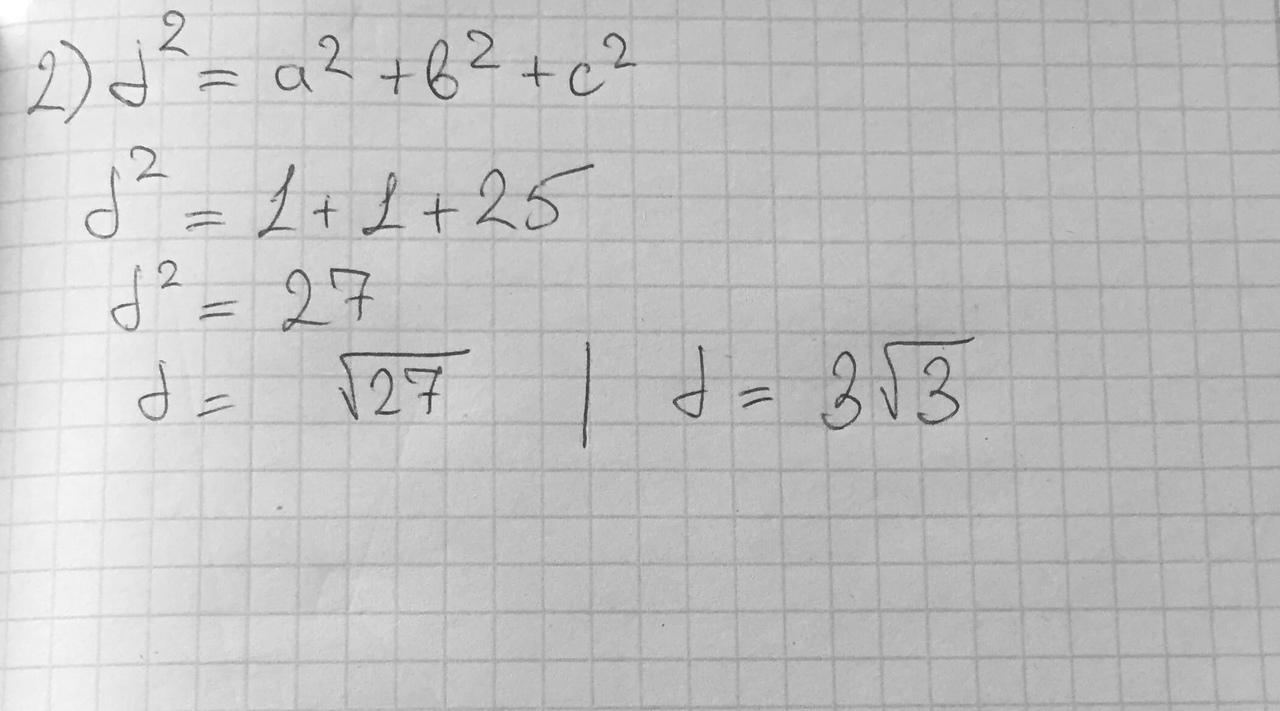 2) d² = a² + b² + c²
d² = 1 + 1 + 25
d² = 27
d = √27 | d = 3√3